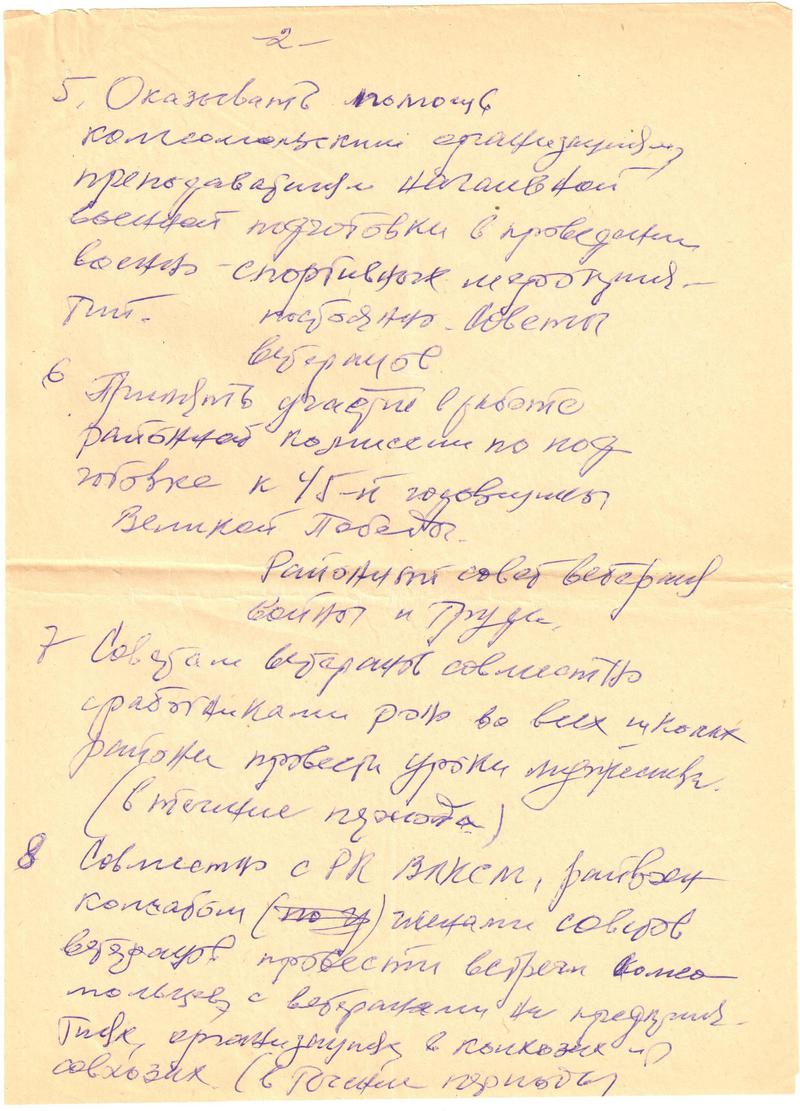 -2-
5. Оказывать помощь
комсомольским организациям,
преподавателям начальной
военной подготовки в проведении
военно-спортивных мероприя-
тий. постоянно. Советы
ветеранов
6 Принять участие в работе
районной комиссии по под
готовке к 45-й годовщины
Великой Победы.
Районный совет ветеранов
войны и труда.
7 Советам ветеранов совместно
с работниками роно во всех школах
района провести уроки мужества.
(в течение периода)
8 Совместно с РК ВЛКСМ, райвоен
коматом членами советов
ветеранов провести встречи комсо
мольцев с ветеранами на предприя-
тиях, организациях в колхозах и
совхозах. (в течение периода)